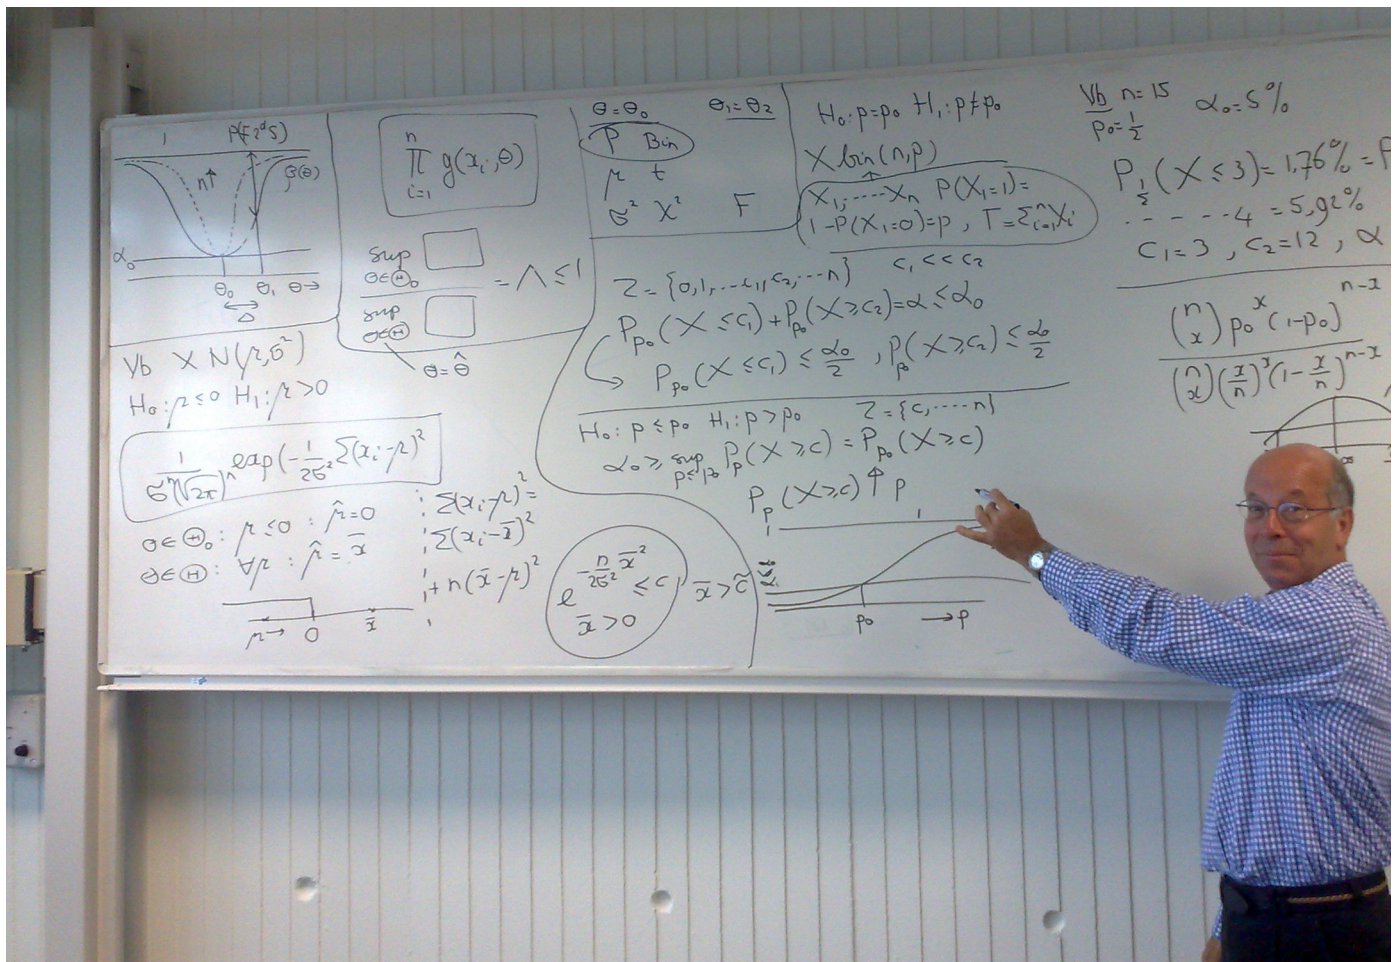 1 P(F 2ᵈ S)
n↑ β(θ)
α₀
θ₀ θ₁ θ→
Δ
n
∏ g(xᵢ, θ)
i=1
sup
θ∈Θ₀
= Λ ≤ 1
sup
θ∈Θ
θ = θ̂
θ=θ₀ θ₁=θ₂
P Bin
μ t
σ² χ² F
Vb X N(μ,σ²)
H₀: μ≤0 H₁: μ>0
1/(σⁿ(√2π)ⁿ) exp(-1/(2σ²) Σ(xᵢ-μ)²
θ∈Θ₀: μ≤0 : μ̂=0
θ∈Θ: ∀μ : μ̂ = x̄
μ→ 0 x̄
Σ(xᵢ-μ)² =
Σ(xᵢ-x̄)²
+ n(x̄-μ)²
e^(-n/(2σ²) x̄²) ≤ c, x̄ > c̃
x̄ > 0
H₀: p=p₀ H₁: p≠p₀
X bin(n,p)
X₁, ..... Xₙ P(X₁=1)=
1-P(X₁=0)=p, T=Σᵢ₌₁ⁿXᵢ
Z = {0,1,...c₁, c₂,...n} c₁ << c₂
P_p₀(X≤c₁)+P_p₀(X≥c₂)=α≤α₀
P_p₀(X≤c₁) ≤ α₀/2, P_p₀(X≥c₂) ≤ α₀/2
H₀: p≤p₀ H₁: p>p₀ Z={c,....n}
α₀ ≥ sup P_p(X≥c) = P_p₀(X≥c)
p≤p₀
P_p(X≥c) ↑ p
1
p₀ → p
Vb n=15 α₀=5%
p₀=½
P_½(X≤3)=1,76%=P
. - - - - - 4 = 5,92%
c₁=3, c₂=12, α
(n x) p₀ˣ (1-p₀)ⁿ⁻ˣ
(n x) (x/n)ˣ (1-x/n)ⁿ⁻ˣ